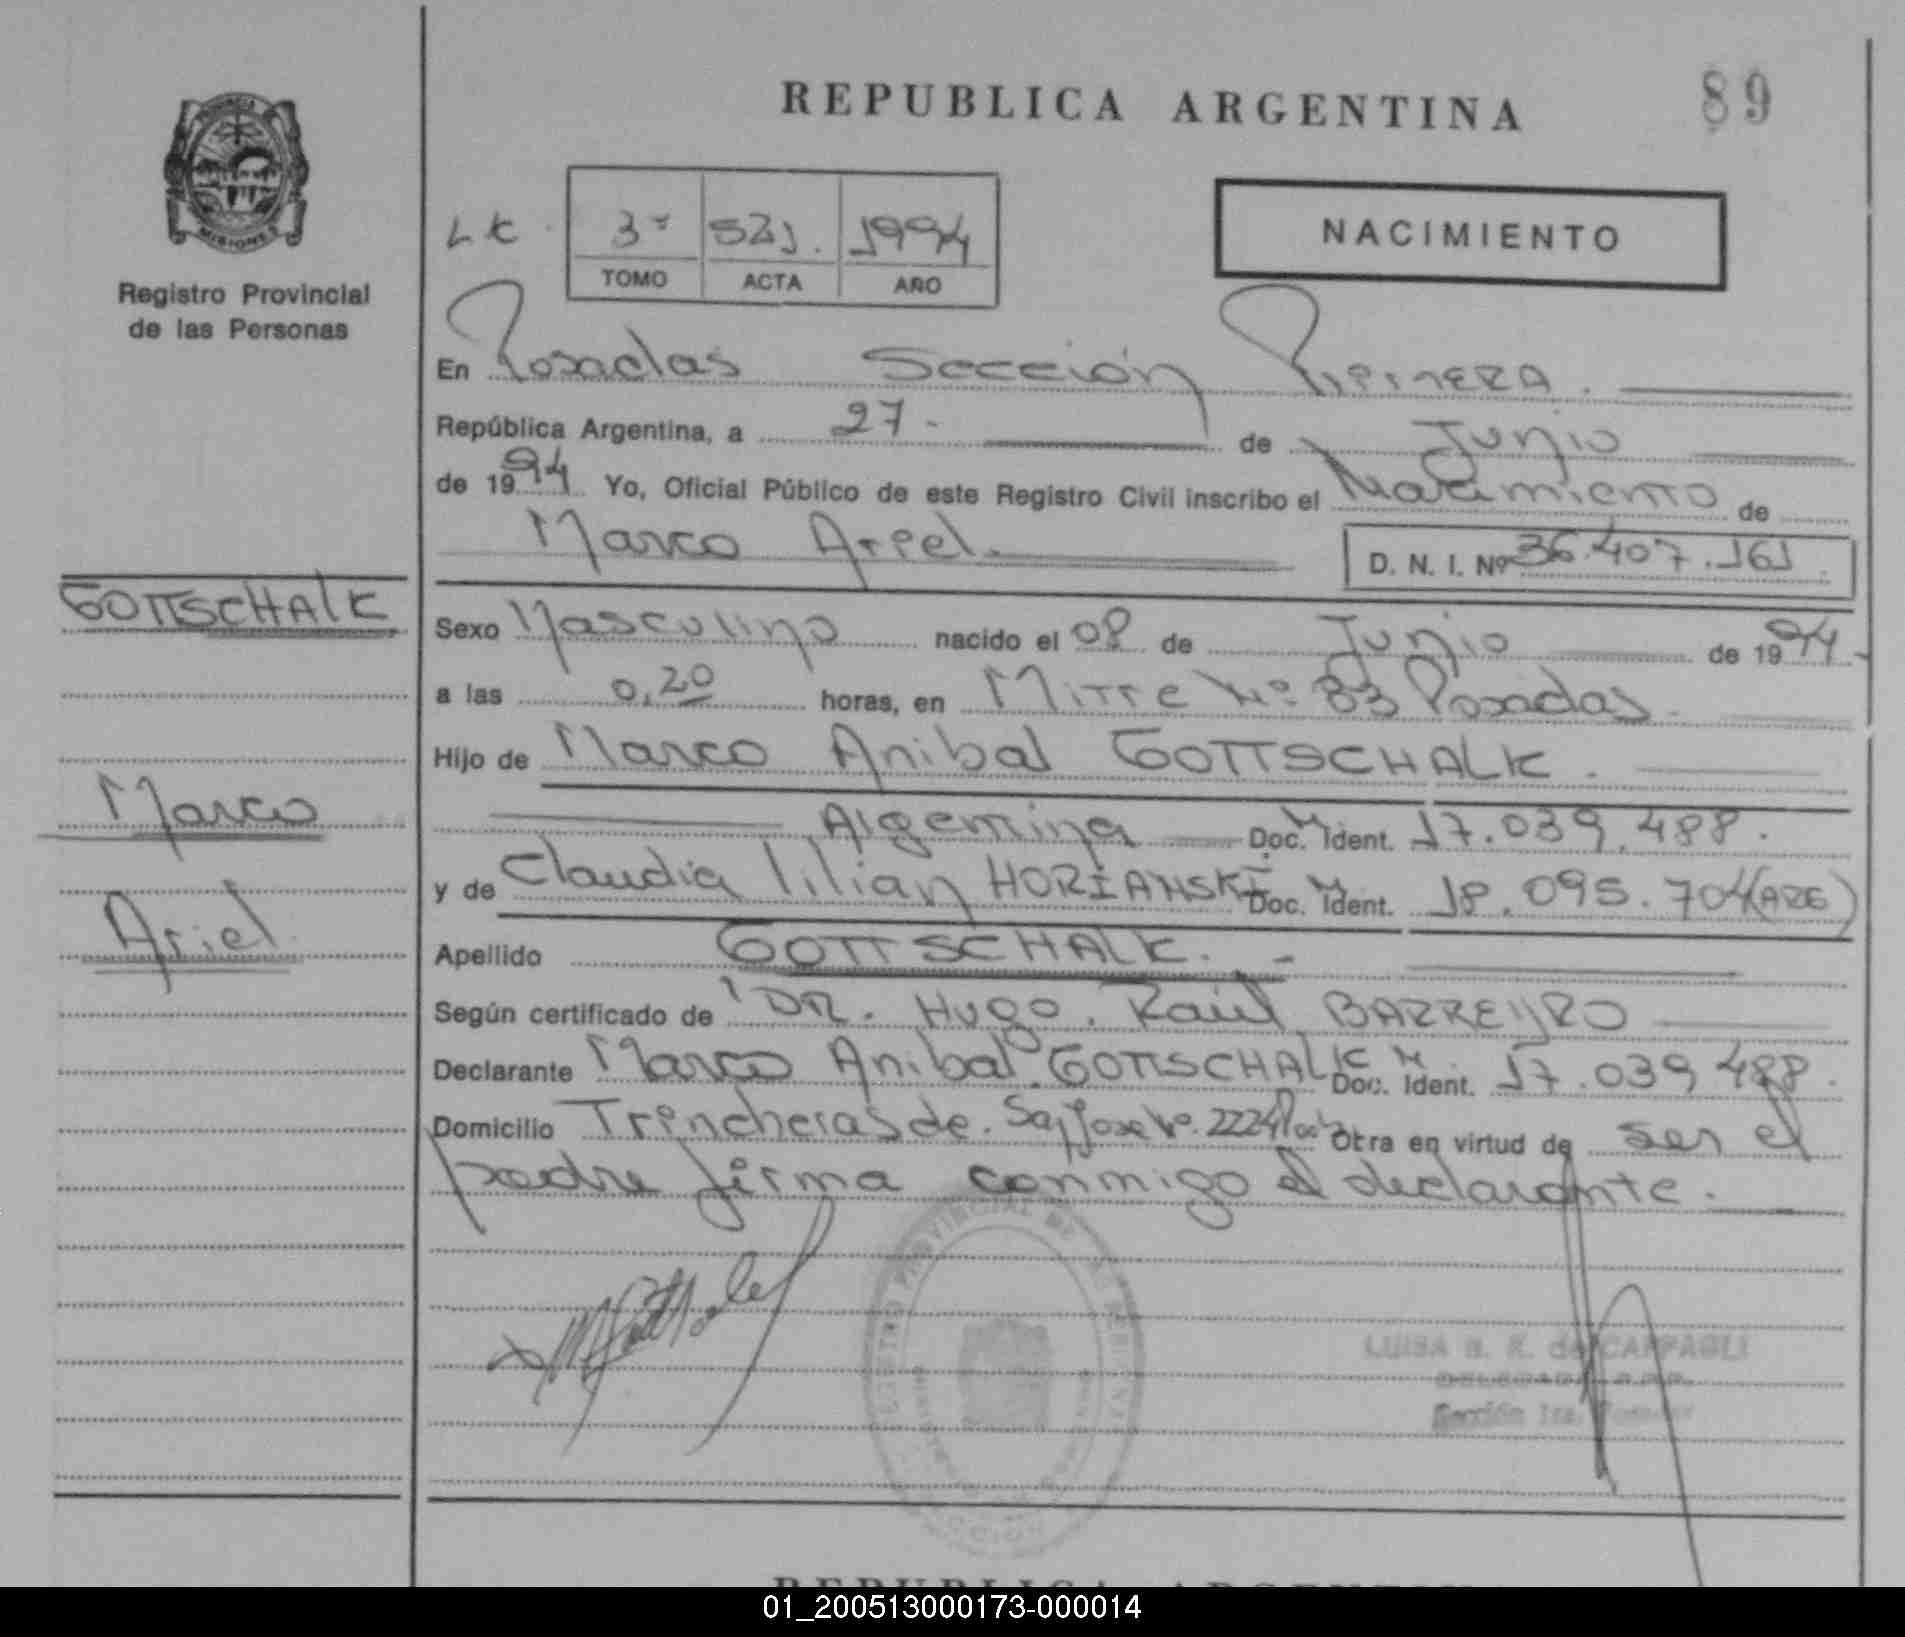 REPUBLICA ARGENTINA
89
MISIONES
Registro Provincial
de las Personas
3º 521. 1994
TOMO ACTA AÑO
NACIMIENTO
En Posadas Sección Primera.
República Argentina, a 27- de Junio
de 1994 Yo, Oficial Público de este Registro Civil inscribo el Nacimiento de
Marco Ariel.
D. N. I. Nº 36.407.161
GOTTSCHALK
Marco
Ariel
Sexo Masculino nacido el 08 de Junio de 1994
a las 0,20 horas, en Mitre Nº 83 Posadas
Hijo de Marco Anibal GOTTSCHALK.
Argentina Doc. M. Ident. 17.039.488.
y de Claudia Lilian HORIANSKI Doc. M. Ident. 18.095.704 (ARG)
Apellido GOTTSCHALK.-
Según certificado de DR. Hugo. Raúl BARREYRO
Declarante Marco Anibal GOTTSCHALK Doc. M. Ident. 17.039.488.
Domicilio Trincheras de San Jose Nº. 2224 Otra en virtud de ser el
padre firma conmigo el declarante.
LUISA de CAFFAGLI
DELEGADA R.P.P.
Sección 1ra. Posadas
REPUBLICA ARGENTINA
01_200513000173-000014